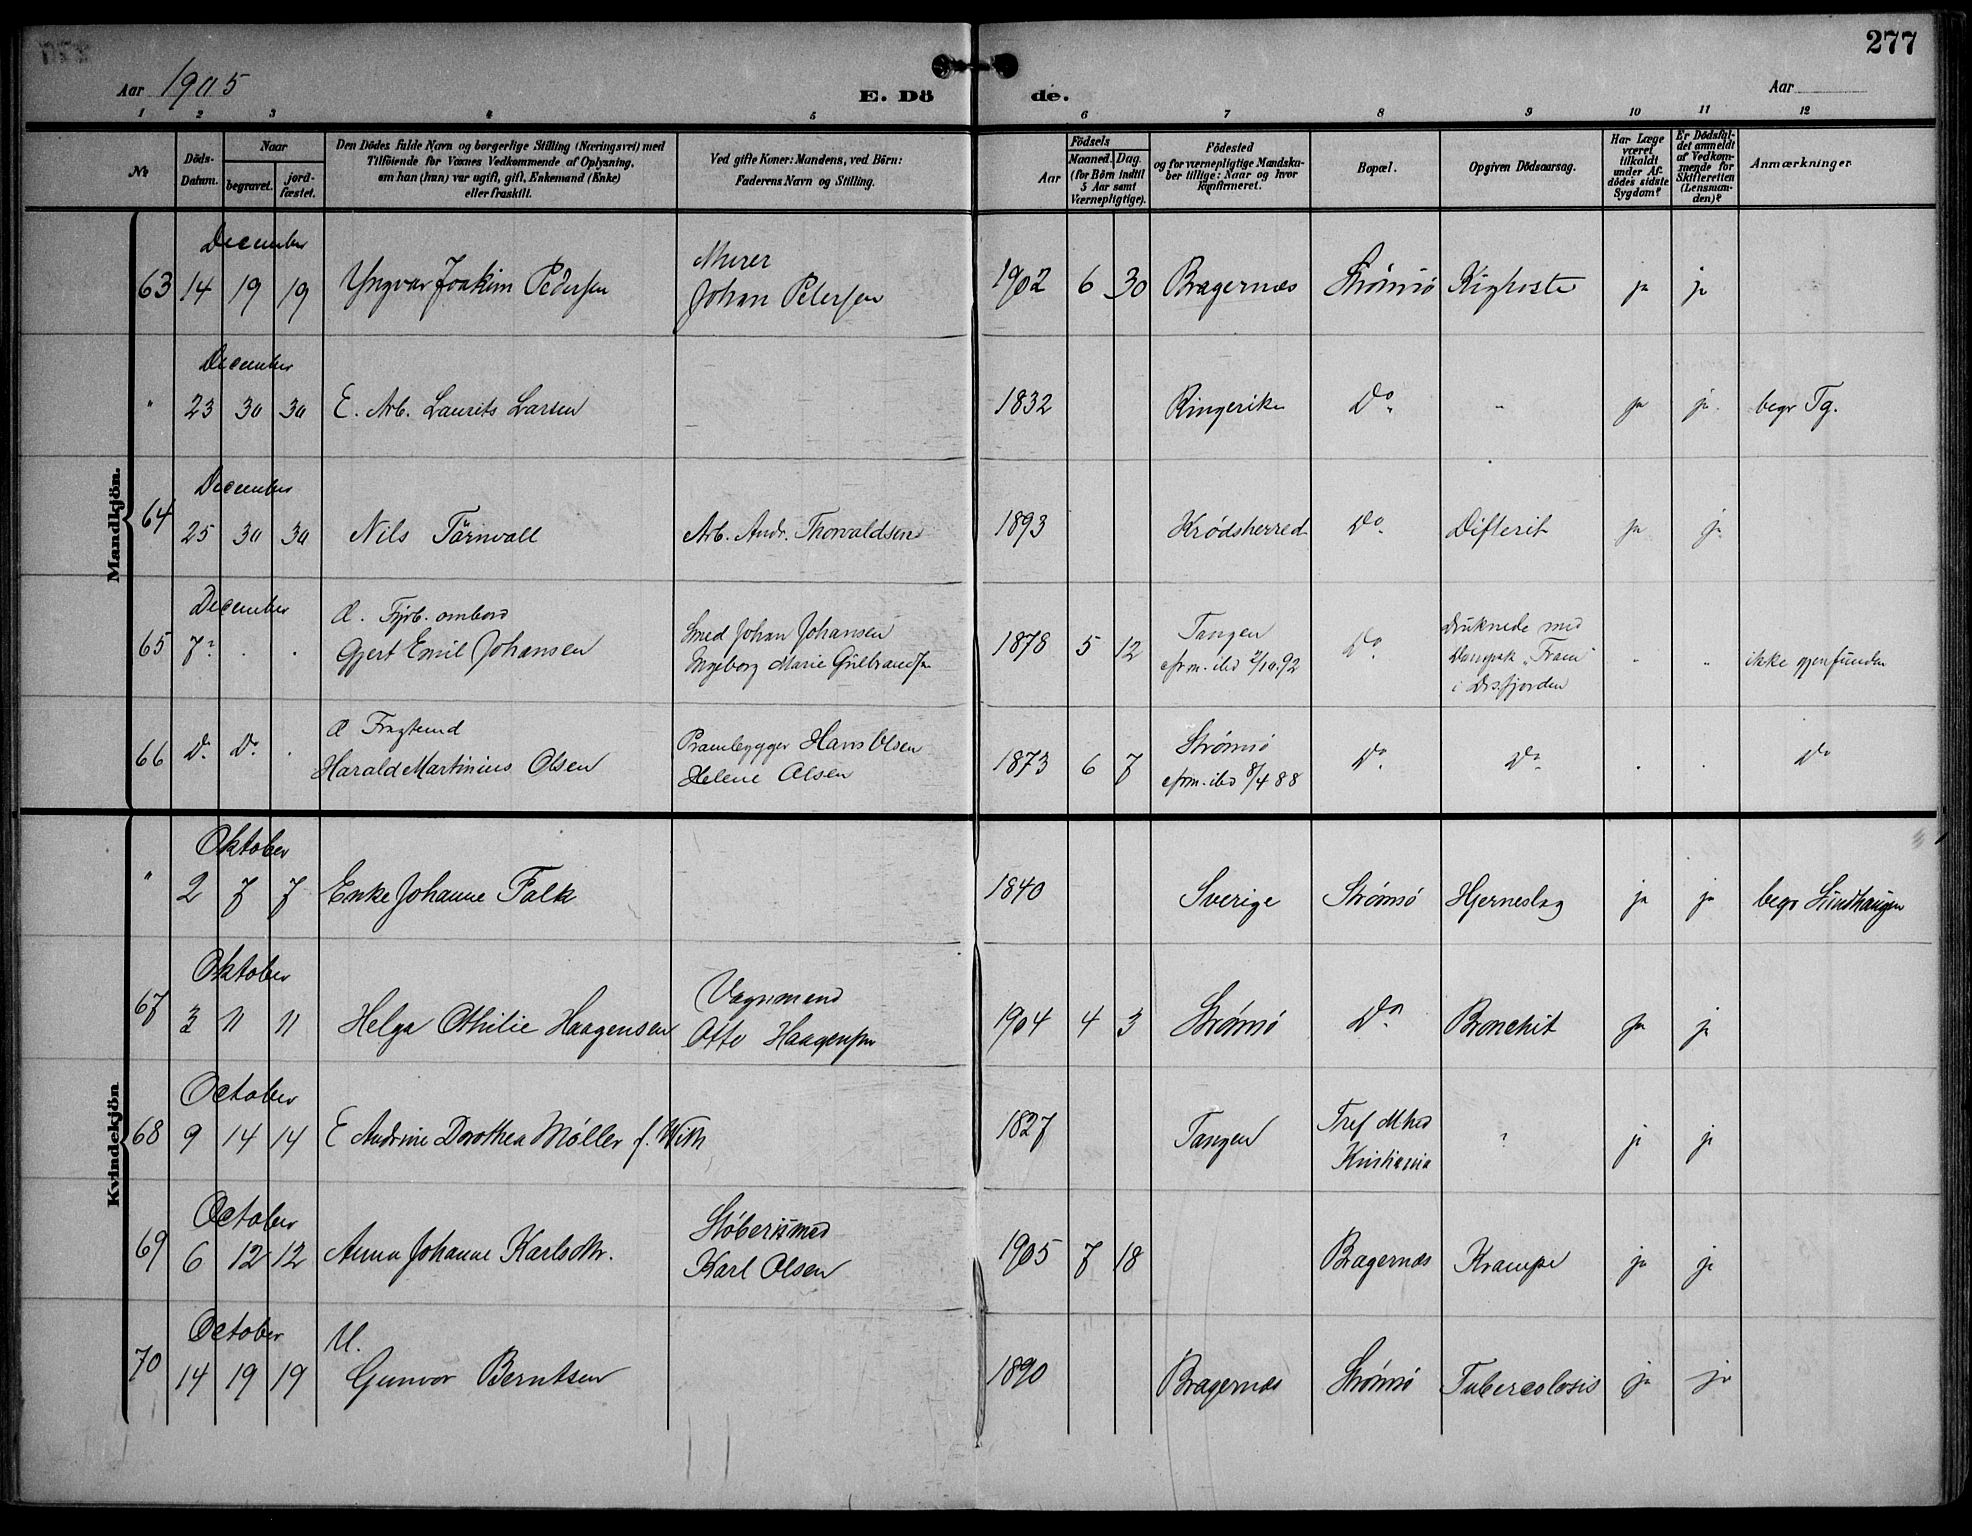 277
Aar 1905
E. Dö
de.
Aar
1 2 3 4 5 6 7 8 9 10 11 12
No
Döds-Datum.
Naar
begravet.
jordfæstet.
Den Dödes fulde Navn og borgerlige Stilling (Næringsvei) med
Tilföiende for Voxnes Vedkommende af Oplysning,
om han (hun) var ugift, gift, Enkemand (Enke)
eller fraskilt.
Ved gifte Koner: Mandens, ved Börn:
Faderens Navn og Stilling.
Födsels
Aar
Maaned. Dag.
(for Börn indtil
5 Aar samt
Værnepligtige).
Födested
og for værnepligtige Mandskaber tillige: Naar og hvor
konfirmeret.
Bopæl.
Opgiven Dödsaarsag.
Har Læge
været
tilkaldt
under Afdödes sidste
Sygdom?
Er Dödsfaldet anmeldt
af Vedkommende for
Skifteretten
(Lensmanden)?
Anmærkninger.
Mandkjön.
December
63 14 19 19 Yngvar Joakim Pedersen Murer Johan Petersen 1902 6 30 Bragernæs Strømsø Kighoste ja ja
December
" 23 30 30 E. Arb. Laurits Larsen 1832 Ringerike Do " ja ja begr Tg.
December
64 25 30 30 Nils Törnvall Arb. Andr. Thorvaldsen 1893 Krødsherred Do Difterit ja ja
December
65 7? . . Fyrb. ombord Gjert Emil Johansen Smed Johan Johansen Ingeborg Marie Gulbrandsen 1878 5 12 Tangen cfrm. ibd 2/10.92 Do Druknede med Dampsk "Fram" i Drsfjorden " " ikke gjenfunden
66 Do Do . Harald Martinius Olsen Prambygger Hans Olsen Helene Olsen 1873 6 7 Strømsø cfrm. ibd 8/4 88 Do Do . . Do
Kvindekjön
Oktober
" 2 7 7 Enke Johanne Falk 1840 Sverige Strømsø Hjerneslag ja ja begr Lundhaugen
Oktober
67 3 11 11 Helga Othilie Haagensen Vognmand Otto Haagensen 1904 4 3 Strømsø Do Bronchit ja ja
October
68 9 14 14 E Andrine Dorothea Møller f. With 1827 Tangen Kristiania " ja ja
October
69 6 12 12 Anna Johanne Karlsdtr. Støberismed Karl Olsen 1905 7 18 Bragernæs Krampe ja ja
October
70 14 19 19 U. Gunvor Berntsen 1890 Bragernæs Strømsø Tuberculosis ja ja